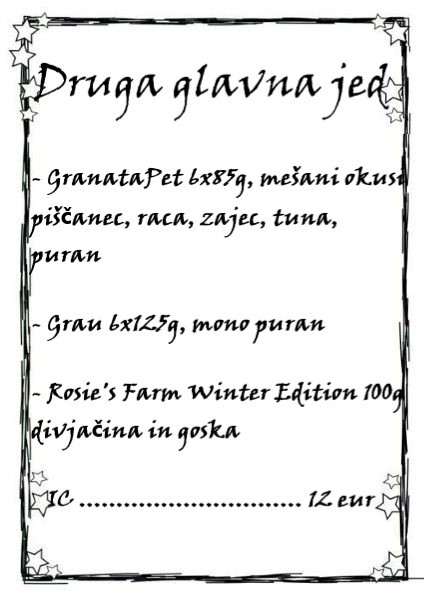 Druga glavna jed
- GranataPet 6x85g, mešani okusi
piščanec, raca, zajec, tuna,
puran
- Grau 6x125g, mono puran
- Rosie's Farm Winter Edition 100g
divjačina in goska
IC .............................. 12 eur